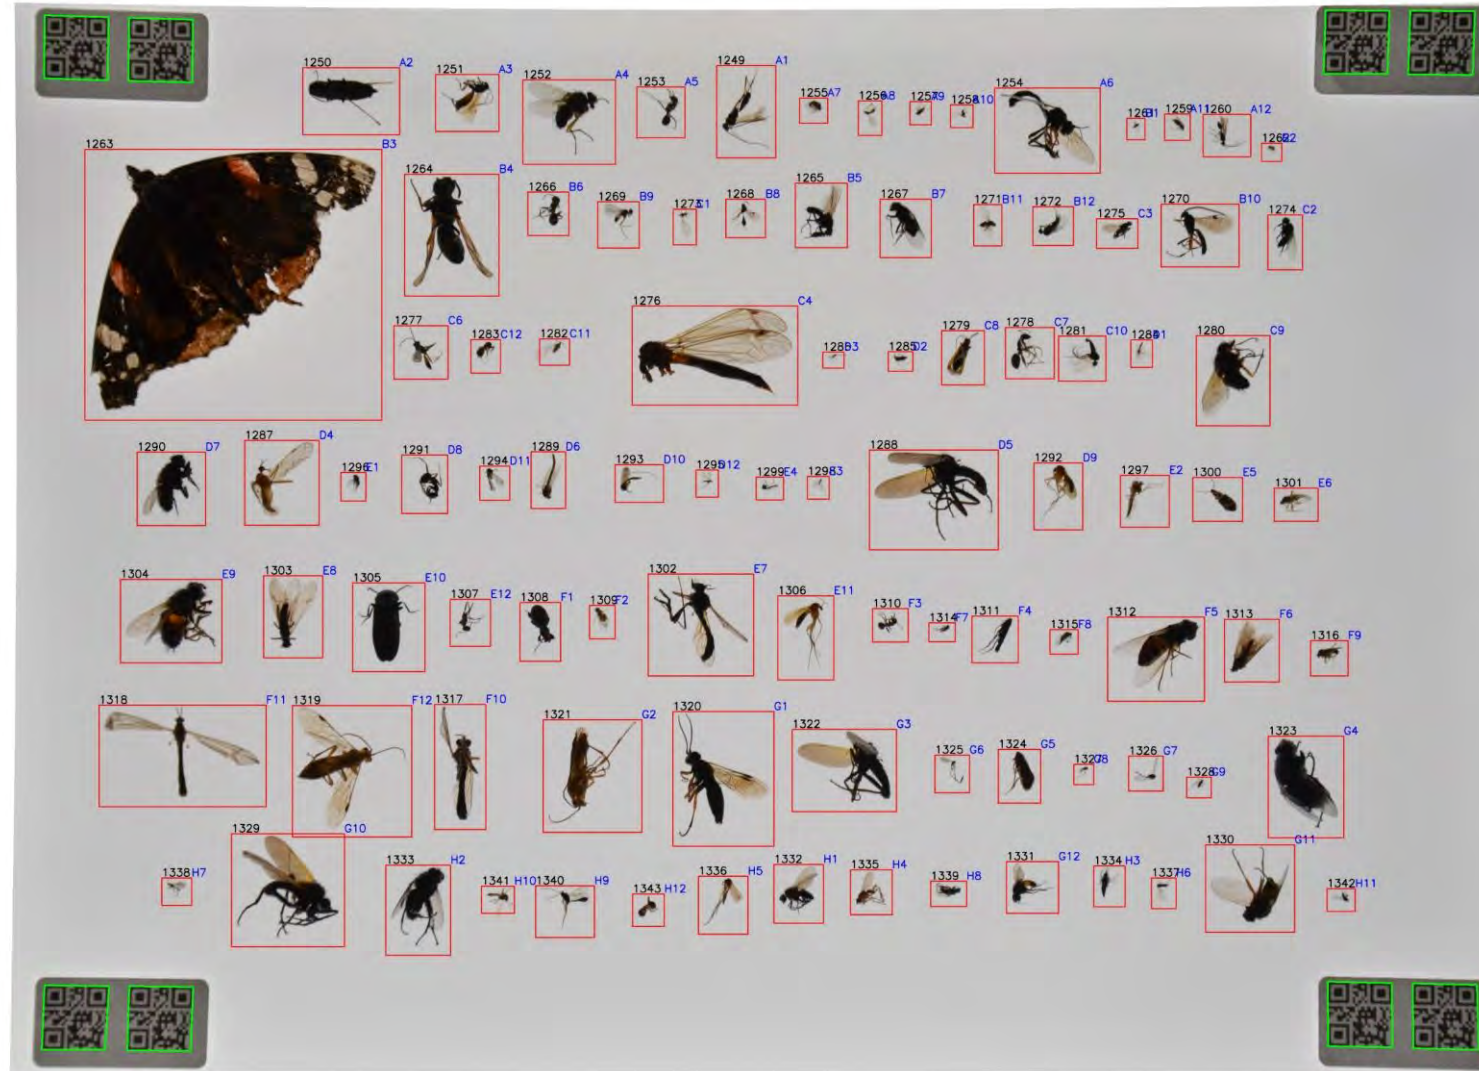 1250 A2
1251 A3
1252 A4
1253 A5
1249 A1
1255 A7
1256 A8
1257 A9
1258 A10
1254 A6
1261 B1
1259 A11
1260 A12
1262 B2
1263 B3
1264 B4
1266 B6
1269 B9
1273 C1
1268 B8
1265 B5
1267 B7
1271 B11
1272 B12
1275 C3
1270 B10
1274 C2
1277 C6
1283 C12
1282 C11
1276 C4
1286 D3
1285 D2
1279 C8
1278 C7
1281 C10
1284 D1
1280 C9
1290 D7
1287 D4
1296 E1
1291 D8
1294 D11
1289 D6
1293 D10
1295 D12
1299 E4
1298 E3
1288 D5
1292 D9
1297 E2
1300 E5
1301 E6
1304 E9
1303 E8
1305 E10
1307 E12
1308 F1
1309 F2
1302 E7
1306 E11
1310 F3
1314 F7
1311 F4
1315 F8
1312 F5
1313 F6
1316 F9
1318 F11
1319 F12
1317 F10
1321 G2
1320 G1
1322 G3
1325 G6
1324 G5
1327 G8
1326 G7
1328 G9
1323 G4
1338 H7
1329 G10
1333 H2
1341 H10
1340 H9
1343 H12
1336 H5
1332 H1
1335 H4
1339 H8
1331 G12
1334 H3
1337 H6
1330 G11
1342 H11